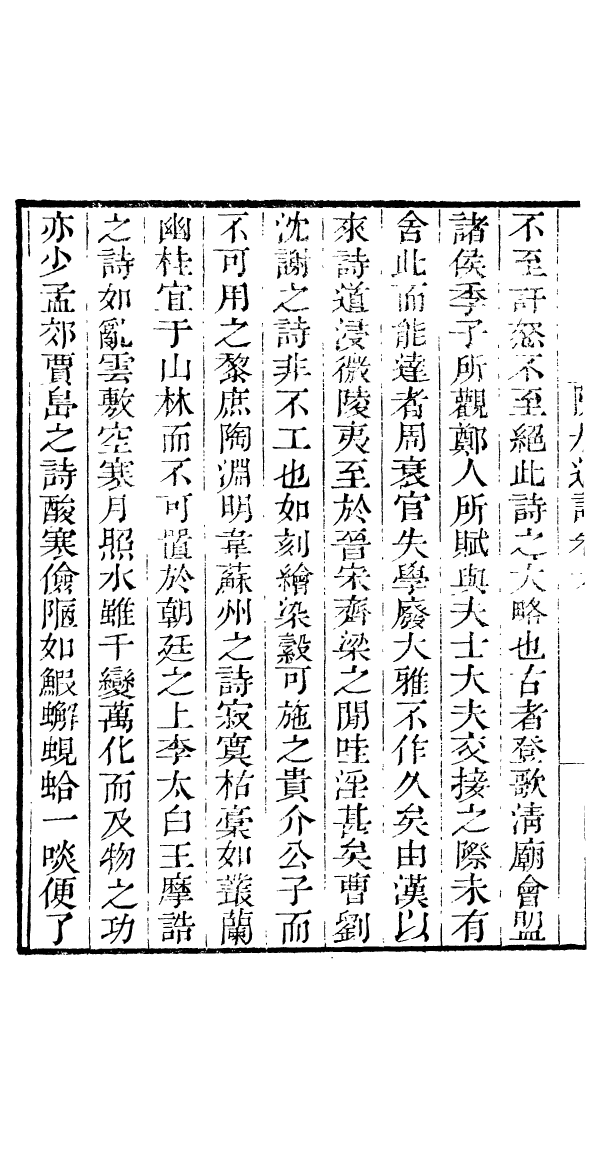 不至訐怒不至絕此詩之大略也古者登歌淸廟會盟
諸侯季子所觀鄭人所賦與夫士大夫交接之際未有
舍此而能達者周衰官失學廢大雅不作久矣由漢以
來詩道浸微陵夷至於晉宋齊梁之閒哇淫甚矣曹劉
沈謝之詩非不工也如刻繪染縠可施之貴介公子而
不可用之黎庶陶淵明韋蘇州之詩寂寞枯槀如叢蘭
幽桂宜于山林而不可置於朝廷之上李太白王摩詰
之詩如亂雲敷空寒月照水雖千變萬化而及物之功
亦少孟郊賈島之詩酸寒儉陋如鰕蠏蜆蛤一啖便了